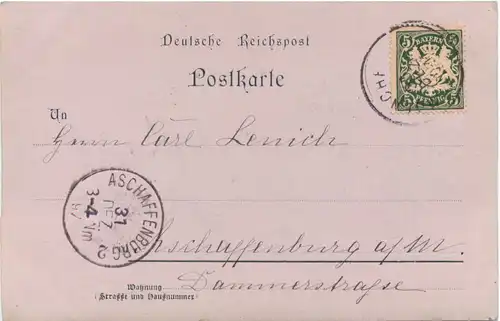 Deutsche Reichspost
Postkarte
BAYERN
5 5
5 PFENNIG 5
An
Herrn Carl Lenich
ASCHAFFENBURG 2
31 DEZ
3-4 Nm
97
Aschaffenburg a/M.
Dammerstraße
Wohnung
(Straße und Hausnummer)